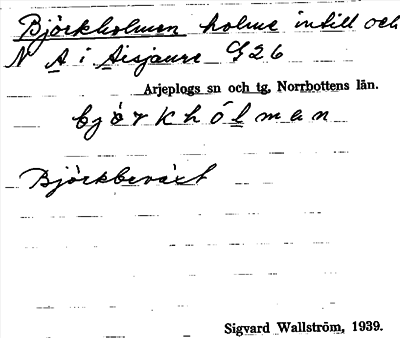 Björkholmen holme intill och
N A i Aisjaure G26
Arjeplogs sn och tg, Norrbottens län.
bjö̀rkhólman
Björkbeväxt
Sigvard Wallström, 1939.